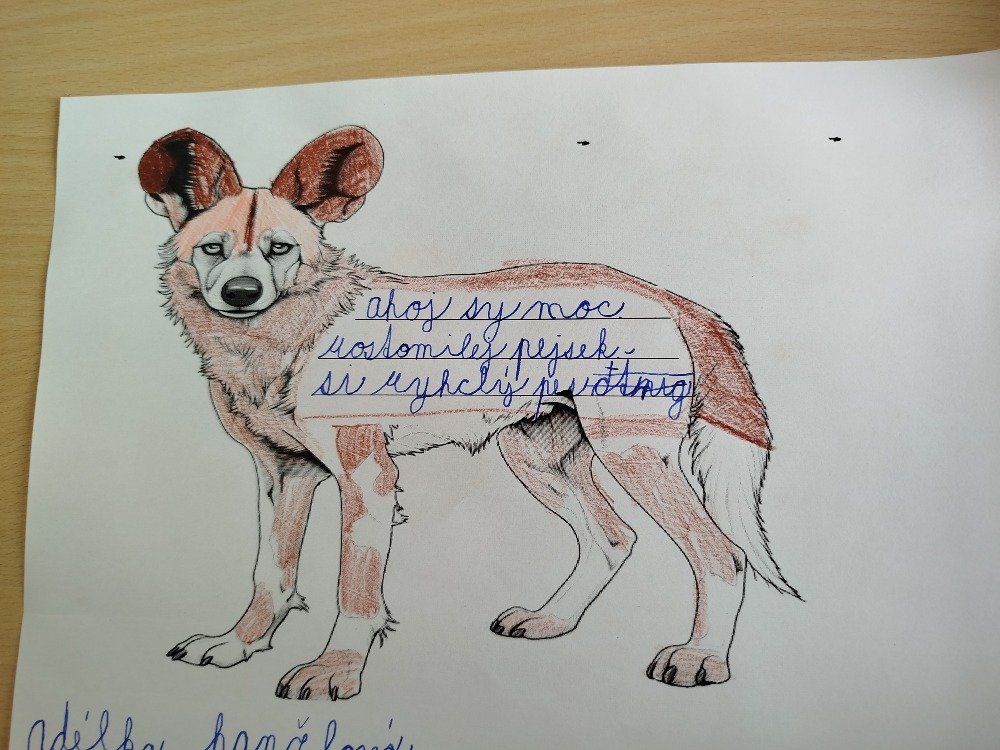 ahoj sy moc
rostomilej pejsek
si rykclý pes
adélka hančlová